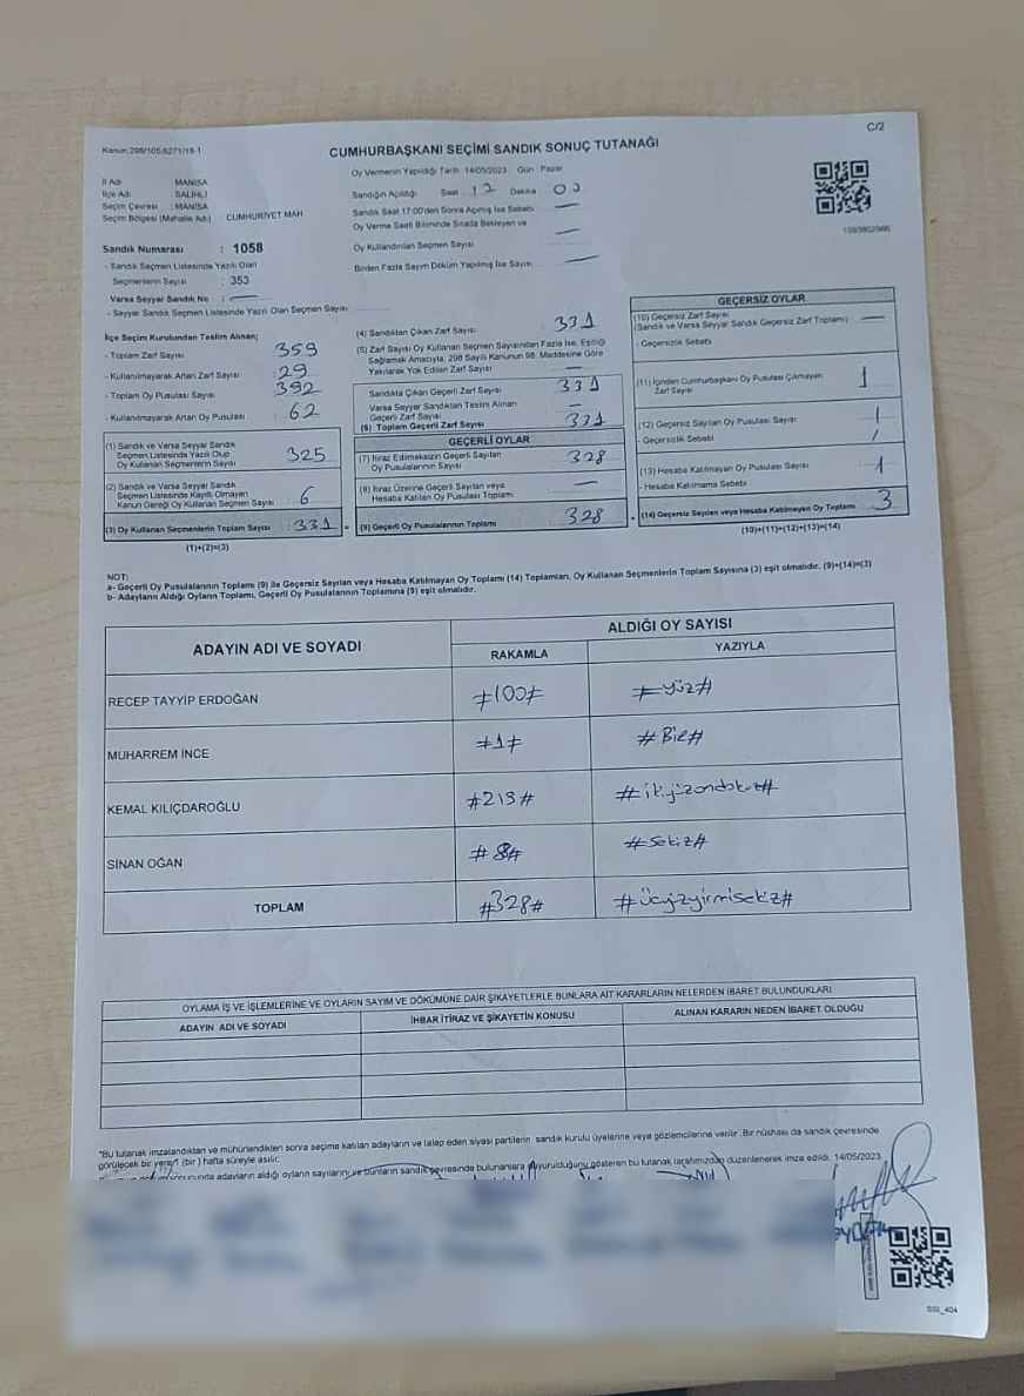 Kanun:298/105,6271/18-1
C/2
CUMHURBAŞKANI SEÇİMİ SANDIK SONUÇ TUTANAĞI
Oy Vermenin Yapıldığı Tarih: 14/05/2023 Gün : Pazar
İl Adı : MANİSA
İlçe Adı : SALİHLİ
Seçim Çevresi : MANİSA
Seçim Bölgesi (Mahalle Adı) CUMHURİYET MAH.
Sandığın Açıldığı Saat 17 Dakika 00
Sandık Saat 17:00'den Sonra Açılmış İse Sebebi
Oy Verme Saati Bitiminde Sırada Bekleyen ve
Oy Kullandırılan Seçmen Sayısı
Birden Fazla Sayım Döküm Yapılmış İse Sayısı
Sandık Numarası : 1058
- Sandık Seçmen Listesinde Yazılı Olan
Seçmenlerin Sayısı : 353
Varsa Seyyar Sandık No :
- Seyyar Sandık Seçmen Listesinde Yazılı Olan Seçmen Sayısı
İlçe Seçim Kurulundan Teslim Alınan;
- Toplam Zarf Sayısı 359
- Kullanılmayarak Artan Zarf Sayısı : 29
- Toplam Oy Pusulası Sayısı 392
- Kullanılmayarak Artan Oy Pusulası : 62
(1) Sandık ve Varsa Seyyar Sandık
Seçmen Listesinde Yazılı Olup
Oy Kullanan Seçmenlerin Sayısı 325
(2) Sandık ve Varsa Seyyar Sandık
Seçmen Listesinde Kayıtlı Olmayan
Kanun Gereği Oy Kullanan Seçmen Sayısı 6
(3) Oy Kullanan Seçmenlerin Toplam Sayısı : 331
(1)+(2)=(3)
(4) Sandıktan Çıkan Zarf Sayısı 331
(5) Zarf Sayısı Oy Kullanan Seçmen Sayısından Fazla İse, Eşitliği
Sağlamak Amacıyla, 298 Sayılı Kanunun 98. Maddesine Göre
Yakılarak Yok Edilen Zarf Sayısı
Sandıkta Çıkan Geçerli Zarf Sayısı 331
Varsa Seyyar Sandıktan Teslim Alınan
Geçerli Zarf Sayısı
(6) Toplam Geçerli Zarf Sayısı 331
GEÇERLİ OYLAR
(7) İtiraz Edilmeksizin Geçerli Sayılan
Oy Pusulalarının Sayısı 328
(8) İtiraz Üzerine Geçerli Sayılan veya
Hesaba Katılan Oy Pusulası Toplamı
(9) Geçerli Oy Pusulalarının Toplamı 328
GEÇERSİZ OYLAR
(10) Geçersiz Zarf Sayısı
(Sandık ve Varsa Seyyar Sandık Geçersiz Zarf Toplamı)
- Geçersizlik Sebebi
(11) İçinden Cumhurbaşkanı Oy Pusulası Çıkmayan
Zarf Sayısı 1
(12) Geçersiz Sayılan Oy Pusulası Sayısı 1
- Geçersizlik Sebebi
(13) Hesaba Katılmayan Oy Pusulası Sayısı 1
- Hesaba Katılmama Sebebi
(14) Geçersiz Sayılan veya Hesaba Katılmayan Oy Toplamı 3
(10)+(11)+(12)+(13)=(14)
NOT:
a- Geçerli Oy Pusulalarının Toplamı (9) ile Geçersiz Sayılan veya Hesaba Katılmayan Oy Toplamı (14) Toplamları, Oy Kullanan Seçmenlerin Toplam Sayısına (3) eşit olmalıdır. (9)+(14)=(3)
b- Adayların Aldığı Oyların Toplamı, Geçerli Oy Pusulalarının Toplamına (9) eşit olmalıdır.
ADAYIN ADI VE SOYADI
ALDIĞI OY SAYISI
RAKAMLA YAZIYLA
RECEP TAYYİP ERDOĞAN #100# #yüz#
MUHARREM İNCE #1# #Bir#
KEMAL KILIÇDAROĞLU #219# #ikiyüzondokuz#
SİNAN OĞAN #8# #Sekiz#
TOPLAM #328# #Üçyüzyirmisekiz#
OYLAMA İŞ VE İŞLEMLERİNE VE OYLARIN SAYIM VE DÖKÜMÜNE DAİR ŞİKAYETLERLE BUNLARA AİT KARARLARIN NELERDEN İBARET BULUNDUKLARI
ADAYIN ADI VE SOYADI İHBAR İTİRAZ VE ŞİKAYETİN KONUSU ALINAN KARARIN NEDEN İBARET OLDUĞU
*Bu tutanak imzalandıktan ve mühürlendikten sonra seçime katılan adayların ve talep eden siyasi partilerin sandık kurulu üyelerine veya gözlemcilerine verilir. Bir nüshası da sandık çevresinde
görülecek bir yere 1 (bir) hafta süreyle asılır.
sonucunda adayların aldığı oyların sayılarını ve bunların sandık çevresinde bulunanlara duyurulduğunu gösteren bu tutanak tarafımızdan düzenlenerek imza edildi. 14/05/2023
SSI_404